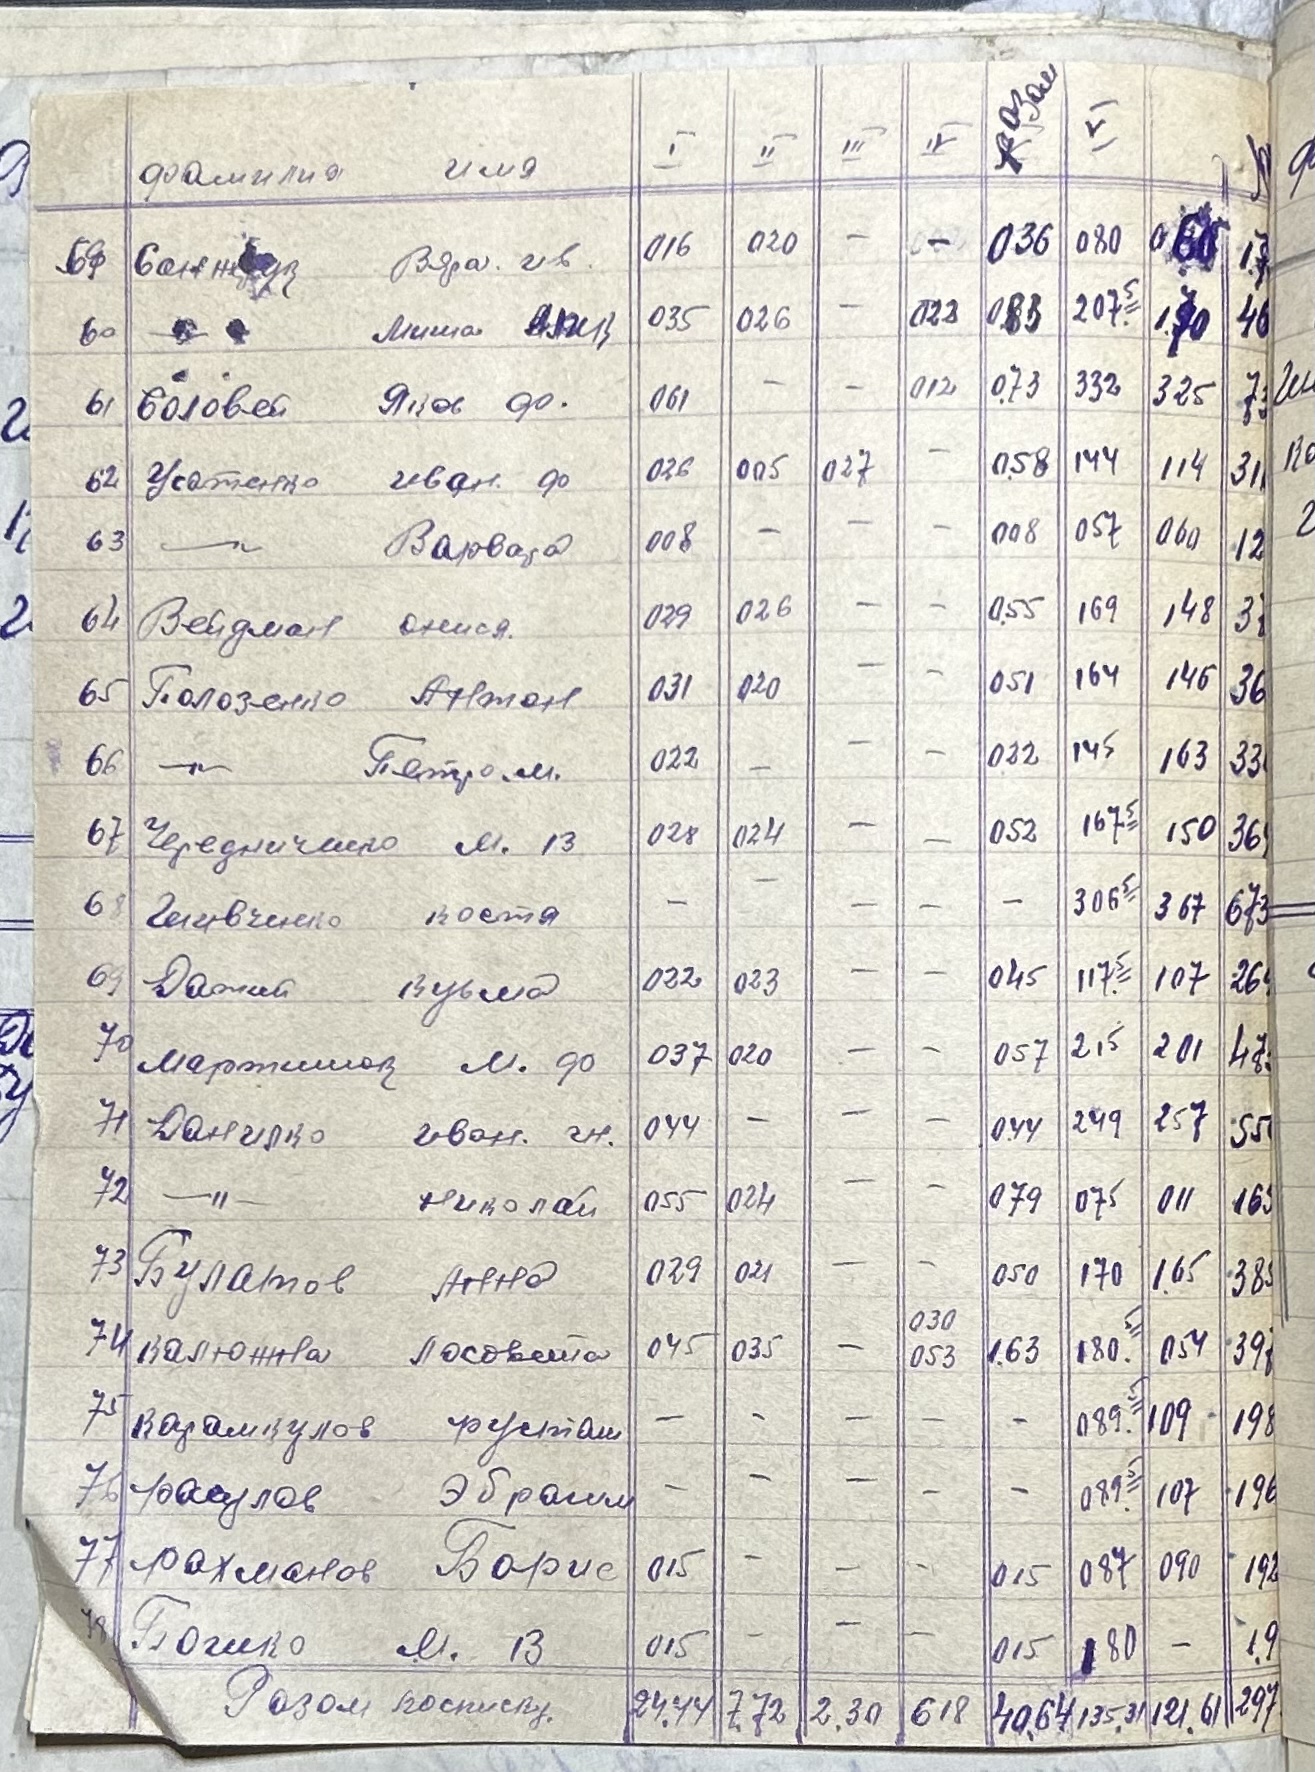 фамилия имя I II III IV разом V
59 Вяра. ив. 016 020 — — 036 080
60 —"— Миша 035 026 — 022 083 207⁵ 1.70 46
61 Соловей Яков ф. 061 — — 012 073 332 325
62 Усатенко иван. ф 026 005 027 — 058 144 114 311
63 —"— Варвара 008 — — — 008 057 060 12
64 Вейдман онися. 029 026 — — 055 169 148
65 Полозенко Антон 031 020 — — 051 164 146 36
66 —"— Петро. м. 022 — — — 022 145 163 33
67 Чередниченко М. В 028 024 — — 052 167⁵ 150 369
68 Шивченко костя — — — — — 306⁵ 367 673
69 Датий кузьма 022 023 — — 045 117⁵ 107 269
70 М. ф 037 020 — — 057 215 201 473
71 Данилко иван. гн. 044 — — — 044 249 257 55
72 —"— николай 055 024 — — 079 075 011 165
73 Булатов Анна 029 021 — — 050 170 1.65 385
74 калюжна Лосовета 045 035 — 030 053 1.63 180.⁵ 054 397
75 карамкулов рустам — — — — — 089.⁵ 109 198
76 расулов Эбрагим — — — — — 089.⁵ 107 196
77 рахманов Борис 015 — — — 015 087 090 192
78 М. В 015 — — — 015 180 — 1.9
Разом посписку. 24.44 7.72 2.30 618 40.64 135.31 121.61 297